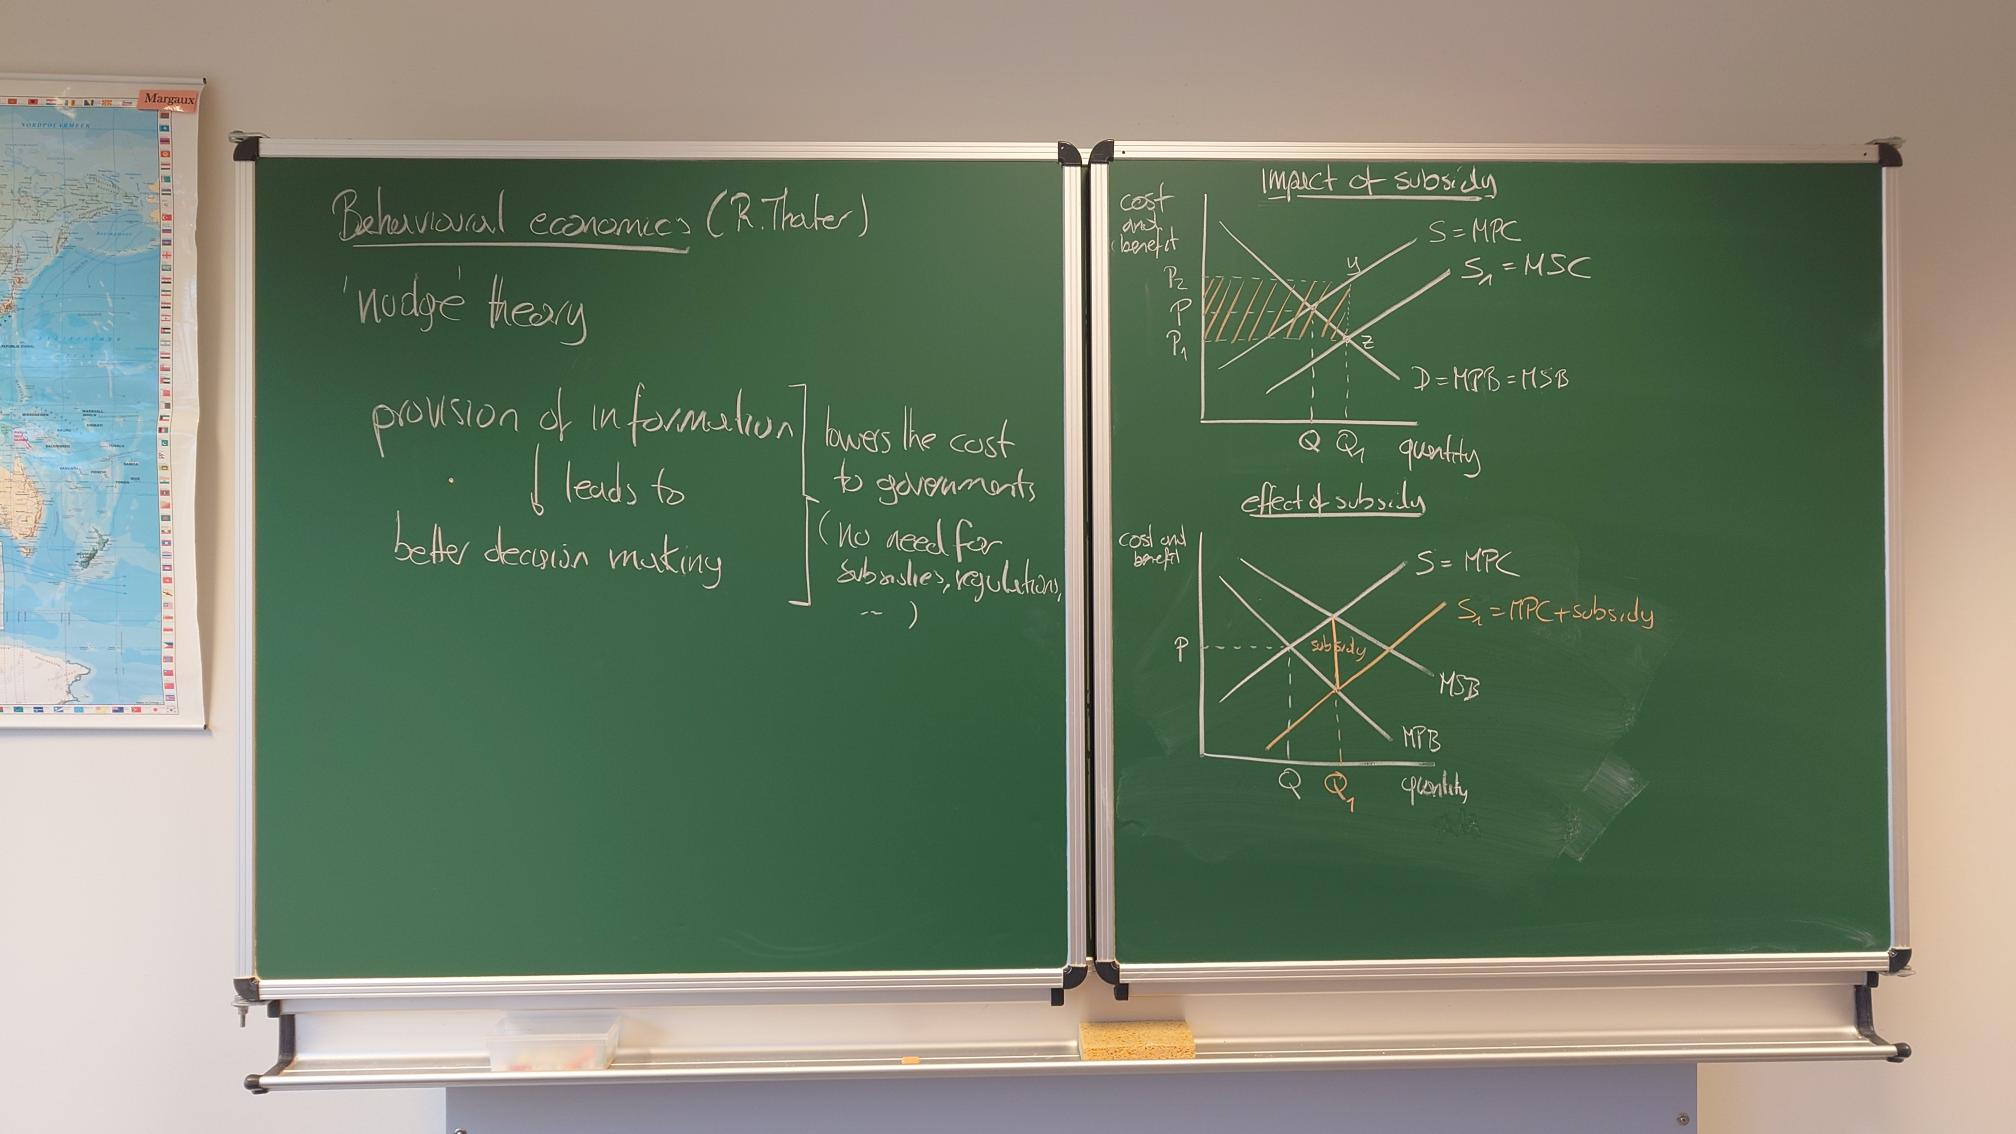 Margaux
NORDPOLARMEER
Behavioural economics (R.Thaler)
'nudge' theory
provision of information
leads to
better decision making
lowers the cost
to governments
(no need for
subsidies, regulations,
... )
Impact of subsidy
cost
and
benefit
P2
P
P1
y
z
S = MPC
S1 = MSC
D = MPB = MSB
Q Q1 quantity
effect of subsidy
cost and
benefit
S = MPC
S1 = MPC + subsidy
P
subsidy
MSB
MPB
Q Q1 quantity